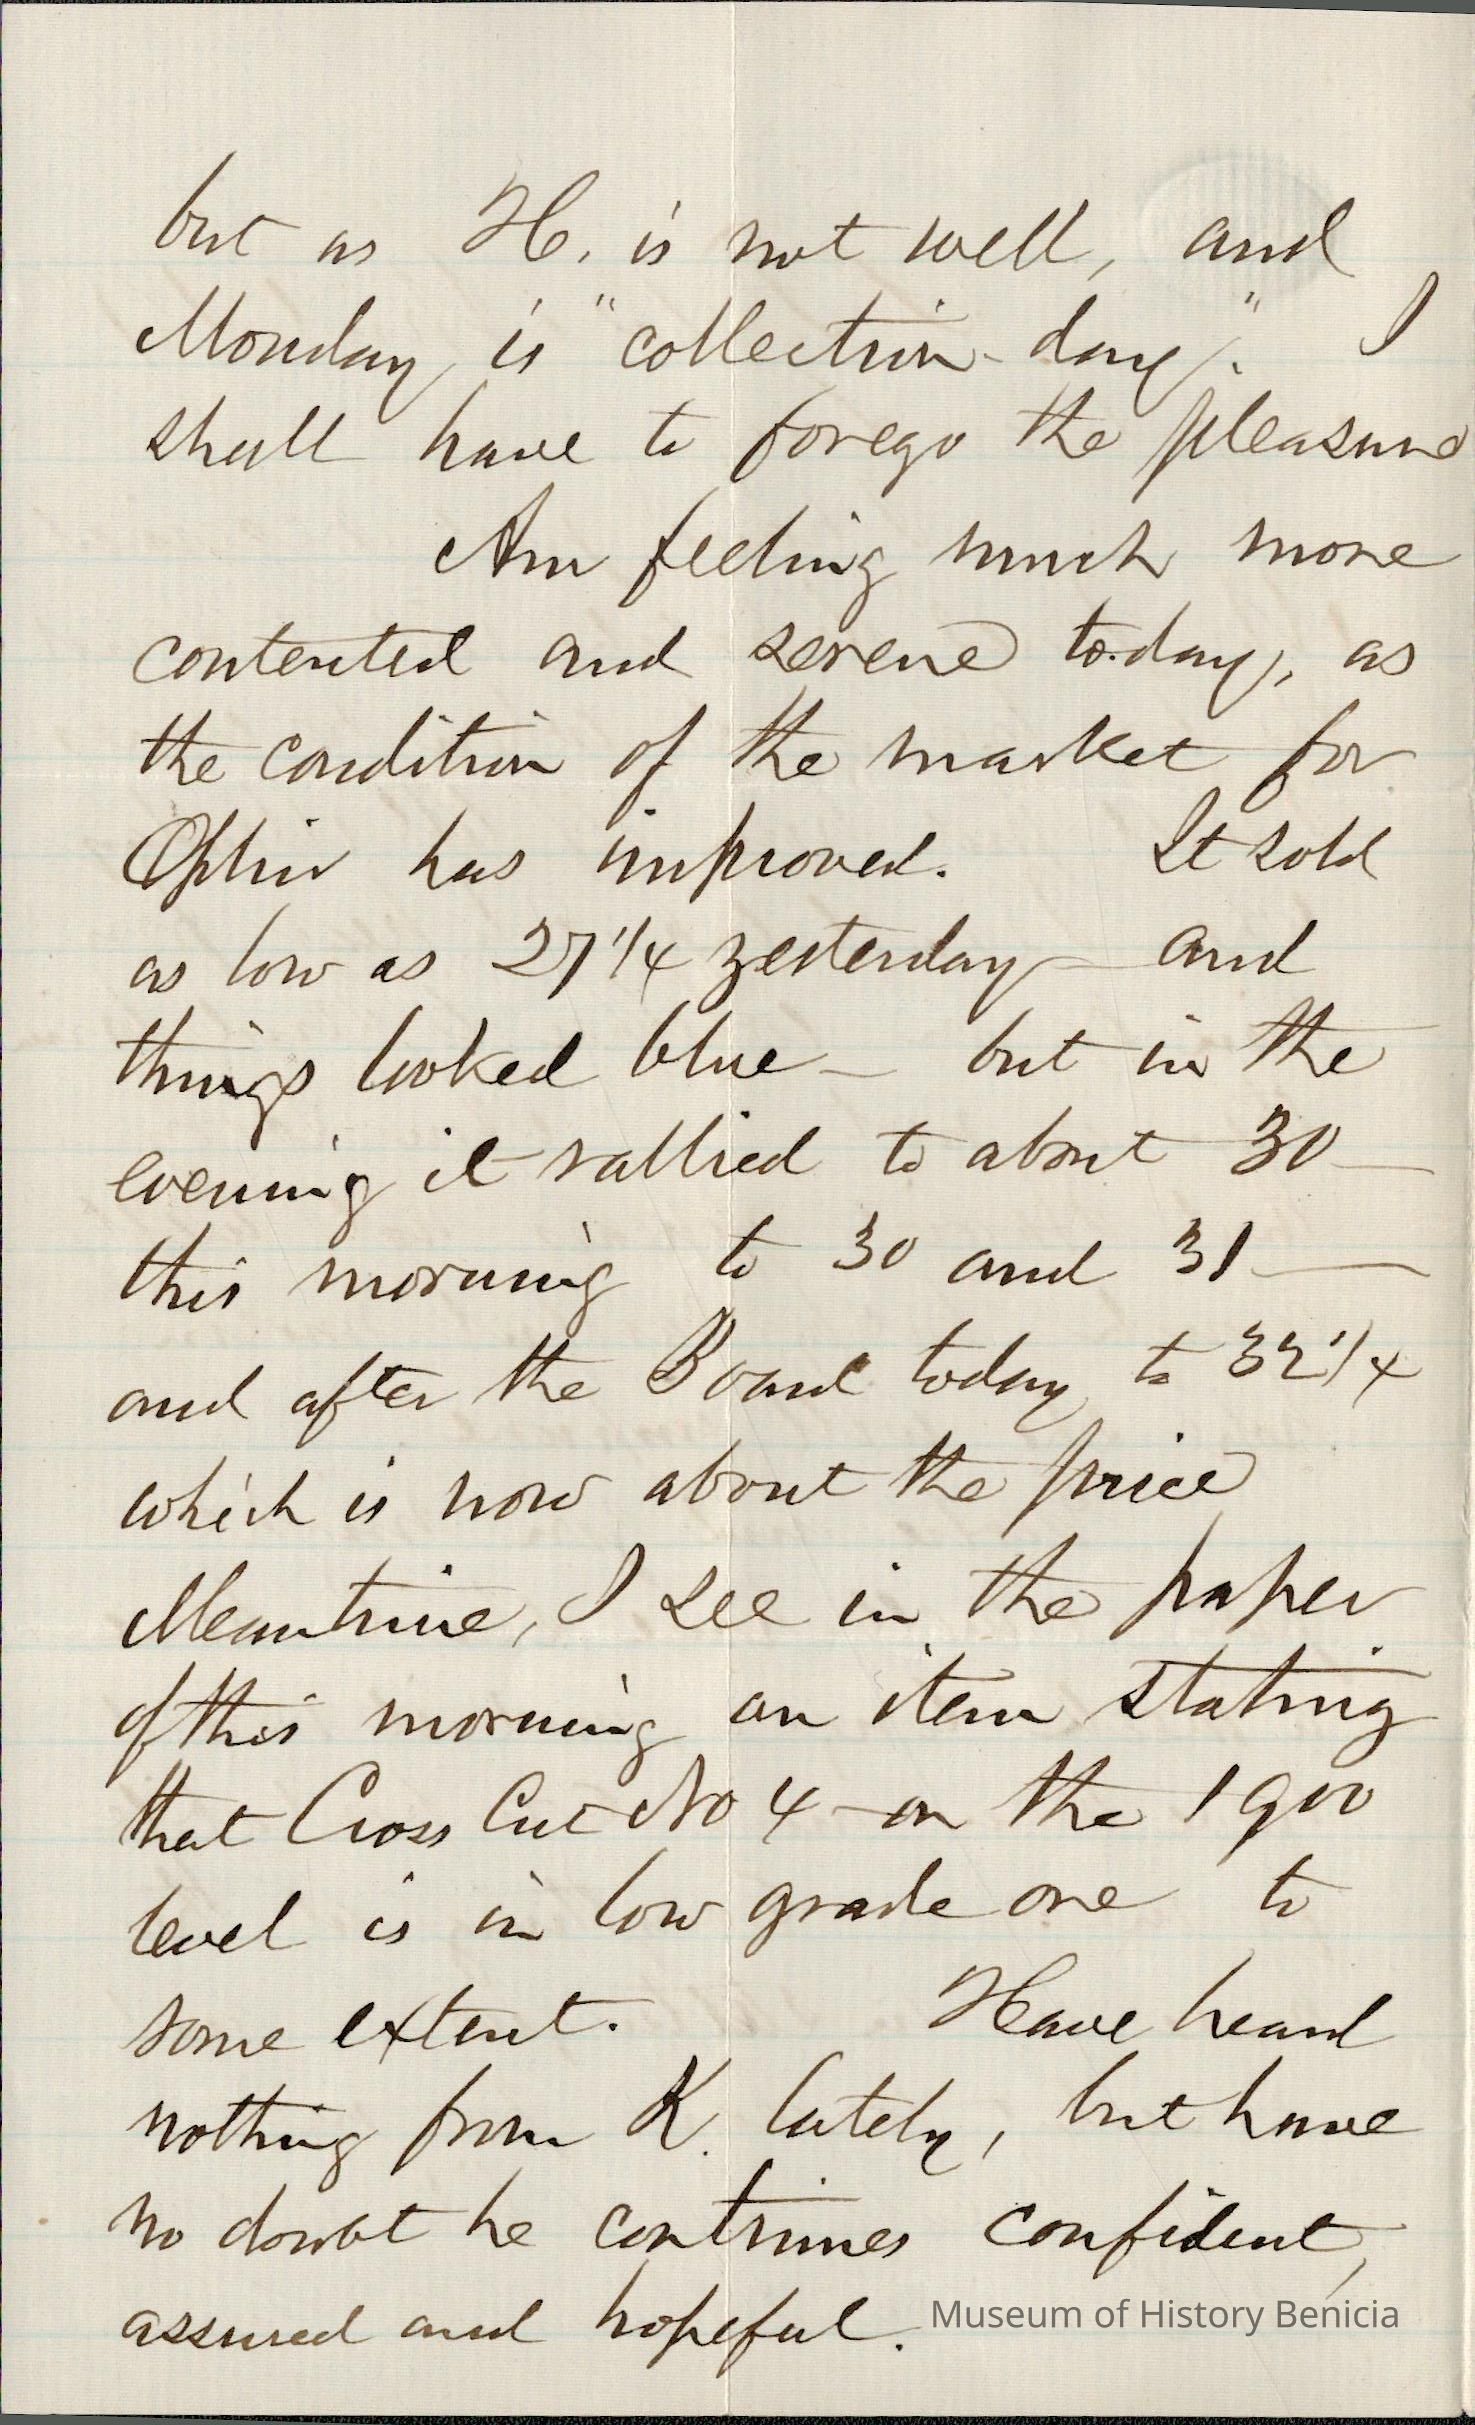 but as H. is not well, and
Monday is "collection-day". I
shall have to forego the pleasure
Am feeling much more
contented and serene to-day, as
the condition of the market for
Ophir has improved. It sold
as low as 27 1/4 yesterday and
things looked blue — but in the
evening it rallied to about 30 —
this morning to 30 and 31 —
and after the Board today to 32 1/4
which is now about the price
Meantime, I see in the paper
of this morning an item stating
that Cross Cut No 4 on the 1900
level is in low grade ore to
some extent. Have heard
nothing from K. lately, but have
no doubt he continues confident,
assured and hopeful.
Museum of History Benicia